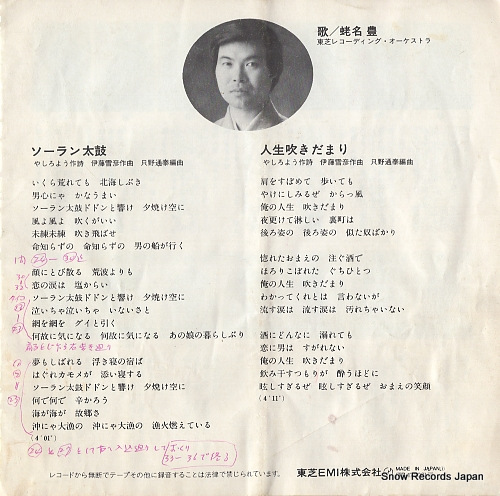 歌／蛯名 豊
東芝レコーディング・オーケストラ
ソーラン太鼓
やしろよう作詩 伊藤雪彦作曲 只野通泰編曲
いくら荒れても 北海しぶき
男心にゃ かなうまい
ソーラン太鼓ドドンと響け 夕焼け空に
風よ風よ 吹くがいい
未練未練 吹き飛ばせ
命知らずの 命知らずの 男の船が行く
顔にとび散る 荒波よりも
恋の涙は 塩からい
ソーラン太鼓ドドンと響け 夕焼け空に
泣いちゃ泣いちゃ いないさと
網を網を グイと引く
何故に気になる 何故に気になる あの娘の暮らしぶり
夢もしばれる 浮き寝の宿ば
はぐれカモメが 添い寝する
ソーラン太鼓ドドンと響け 夕焼け空に
何で何で 辛かろう
海が海が 故郷さ
沖にゃ大漁の 沖にゃ大漁の 漁火燃えている
(4'01")
人生吹きだまり
やしろよう作詩 伊藤雪彦作曲 只野通泰編曲
肩をすぼめて 歩いても
やけにしみるぜ からっ風
俺の人生 吹きだまり
夜更けて淋しい 裏町は
後ろ姿の 後ろ姿の 似た奴ばかり
惚れたおまえの 注ぐ酒で
ほろりこぼれた ぐちひとつ
俺の人生 吹きだまり
わかってくれとは 言わないが
流す涙は 流す涙は 汚れちゃいない
酒にどんなに 溺れても
恋に男は すがれない
俺の人生 吹きだまり
飲み干すつもりが 酔うほどに
眩しすぎるぜ 眩しすぎるぜ おまえの笑顔
(4'11")
レコードから無断でテープその他に録音することは法律で禁じられています。
東芝EMI株式会社
MADE IN JAPAN
Snow Records Japan